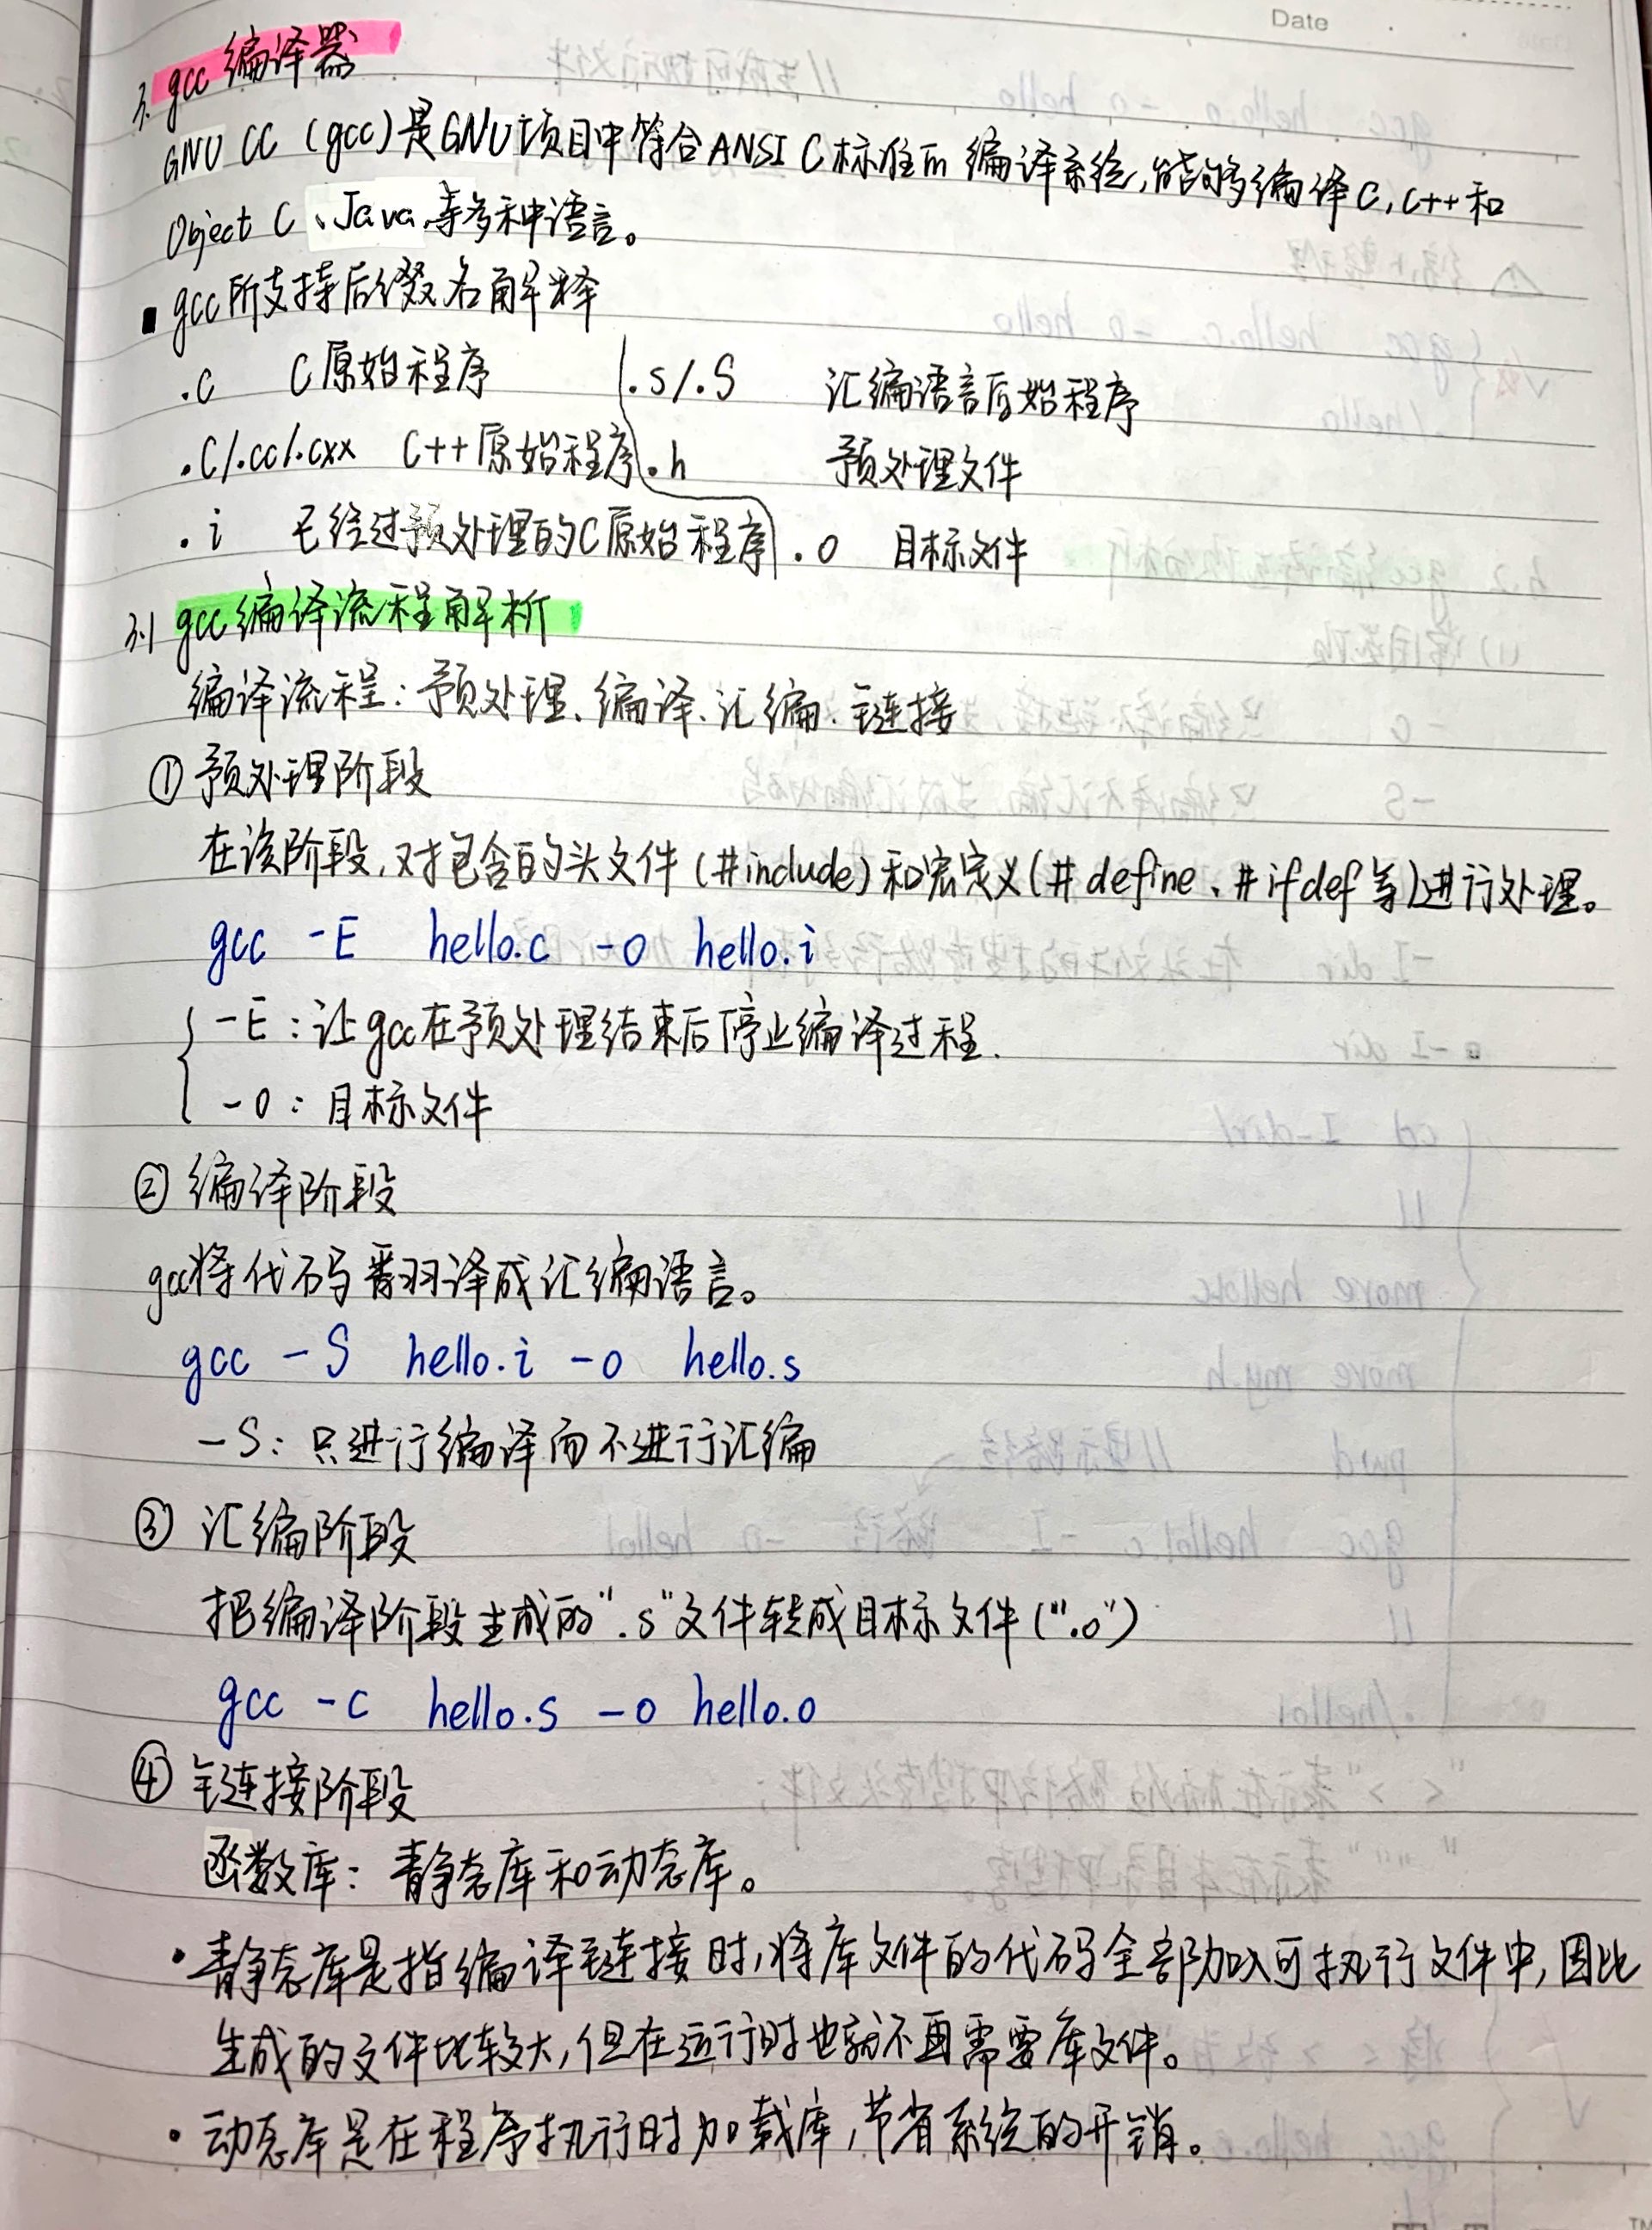 Date
3. gcc 编译器
GNU CC (gcc)是GNU项目中符合ANSI C标准的编译系统,能够编译C,C++和
Object C、Java等多种语言。
▪ gcc所支持后缀名解释
.c C原始程序 .s/.S 汇编语言原始程序
.C/.cc/.cxx C++原始程序 .h 预处理文件
.i 已经过预处理的C原始程序 .o 目标文件
3.1 gcc编译流程解析
编译流程:预处理、编译、汇编、链接
① 预处理阶段
在该阶段,对包含的头文件(#include)和宏定义(#define、#ifdef等)进行处理。
gcc -E hello.c -o hello.i
-E:让gcc在预处理结束后停止编译过程.
-o:目标文件
② 编译阶段
gcc将代码翻译成汇编语言。
gcc -S hello.i -o hello.s
-S:只进行编译而不进行汇编
③ 汇编阶段
把编译阶段生成的“.s”文件转成目标文件(“.o”)
gcc -c hello.s -o hello.o
④ 链接阶段
函数库:静态库和动态库。
• 静态库是指编译链接时,将库文件的代码全部加入可执行文件中,因此
生成的文件比较大,但在运行时也就不再需要库文件。
• 动态库是在程序执行时加载库,节省系统的开销。